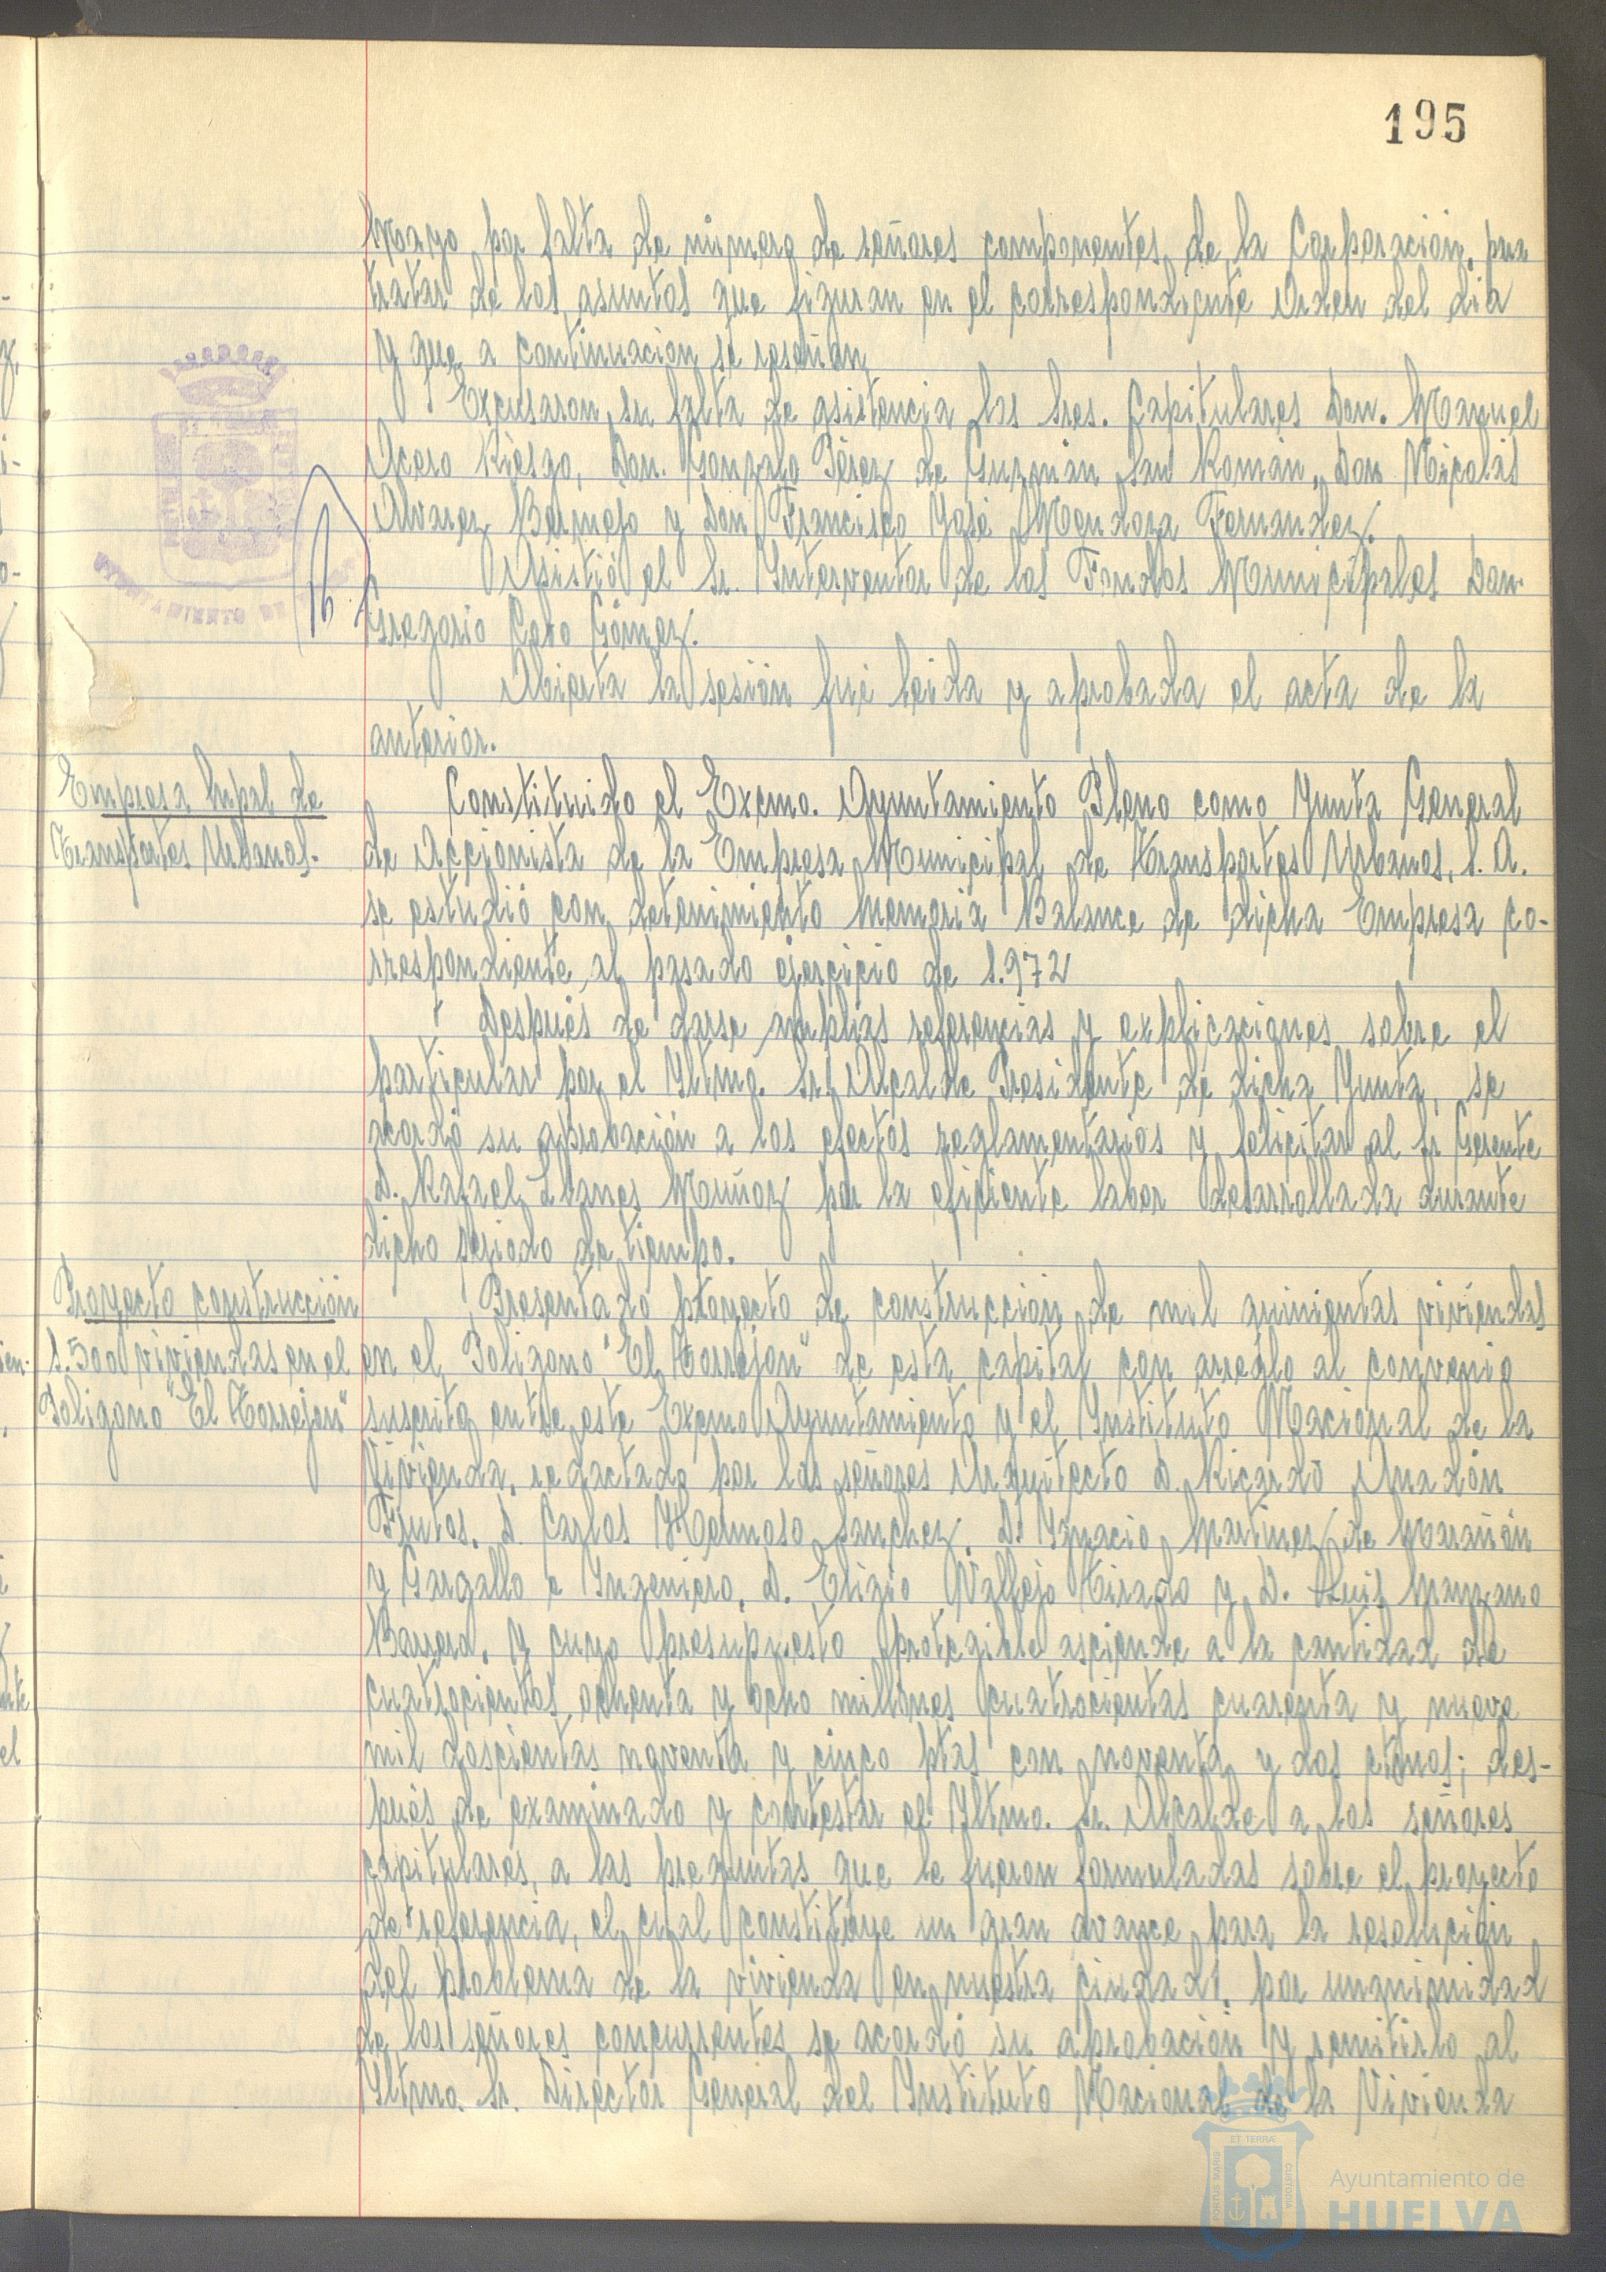 195
Mayo por falta de número de señores componentes de la Corporación, para
tratar de los asuntos que figuran en el correspondiente Orden del día
y que a continuación se reseñan
Excusaron su falta de asistencia los Sres. Capitulares Don. Manuel
Acero Riesgo, Don. Gonzalo Pérez de Guzmán San Román, Don Nicolás
Alvarez Bermejo y Don Francisco José Mendoza Fernandez.
Asistió el Sr. Interventor de los Fondos Municipales Don.
Gregorio Gómez.
Abierta la sesión fué leida y aprobada el acta de la
anterior.
Empresa Mpal de
Transportes Urbanos.
Constituido el Excmo. Ayuntamiento Pleno como Junta General
de Accionista de la Empresa Municipal de Transportes Urbanos, S. A.
se estudió con detenimiento Memoria Balance de dicha Empresa co-
rrespondiente al pasado ejercicio de 1.972
Después de darse amplias referencias y explicaciones sobre el
particular por el Iltmo. Sr. Alcalde Presidente de dicha Junta, se
acordó su aprobación a los efectos reglamentarios y felicitar al Sr Gerente
D. Rafael Llanes Muñoz por la eficiente labor desarrollada durante
dicho periodo de tiempo.
Proyecto construcción
1.500 viviendas en el
Poligono "El Torrejon"
Presentado proyecto de construcción de mil quinientas viviendas
en el Poligono "El Torrejon" de esta capital con arreglo al convenio
suscrito entre este Excmo Ayuntamiento y el Instituto Nacional de la
Vivienda, redactado por los señores Arquitecto D. Ricardo Anadón
Frutos, D. Carlos Hermoso Sanchez, D. Ignacio Martinez de Marañón
y Gargallo e Ingeniero, D. Eligio Vallejo Tirado y D. Luis Manzano
Barrero, y cuyo presupuesto protegible asciende a la cantidad de
cuatrocientos ochenta y ocho millones cuatrocientas cuarenta y nueve
mil doscientas noventa y cinco ptas con noventa y dos ctmos; des-
pués de examinado y contestar el Iltmo. Sr. Alcalde a los señores
capitulares, a las preguntas que le fueron formuladas sobre el proyecto
de referencia, el cual constituye un gran avance para la resolución
del problema de la vivienda en nuestra ciudad, por unanimidad
de los señores concurrentes se acordó su aprobación y remitirlo al
Iltmo. Sr. Director General del Instituto Nacional de la Vivienda
Ayuntamiento de
HUELVA